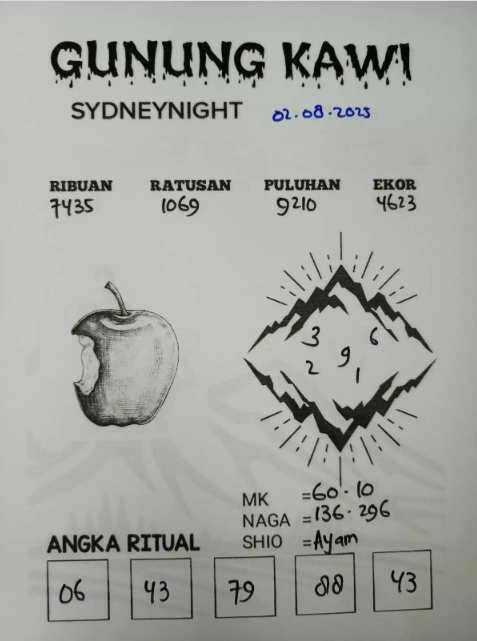 GUNUNG KAWI
SYDNEYNIGHT 02.08.2025
RIBUAN RATUSAN PULUHAN EKOR
7435 1069 9210 4623
3 6
9
2 1
MK =60.10
NAGA =136.296
SHIO =Ayam
ANGKA RITUAL
06 43 79 88 43